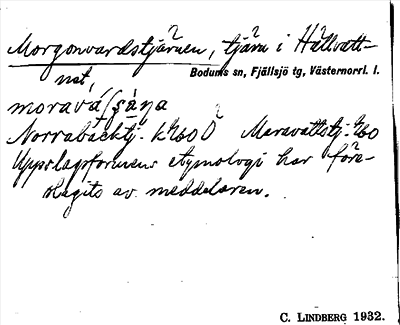 Morgonvardstjärnen, tjärn i Hållvatt-
net, Bodums sn, Fjällsjö tg, Västernorrl. l.
moravá(ʃʂäṇa
Norrabäcktj. k 1:200 Ö Meravattstj.
Uppslagsformens etymologi har före-
slagits av meddelaren.
C. LINDBERG 1932.